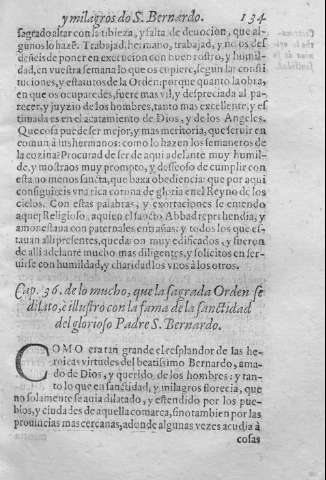 y milagros do S. Bernardo. 134
sagrado altar con la tibieza, y falta de deuocion, que al-
gunos lo hazē. Trabajad, hermano, trabajad, y no os des
deñeis de poner en execucion con buen rostro, y humil-
dad, en vuestra semana lo que os cupiere, segun las consti
tuciones, y estatutos de la Orden: porque quanto la obra,
en que os ocuparedes, fuere mas vil, y despreciada al pa-
recer, y juyzio de los hombres, tanto mas excelente, y es
timada es en el acatamiento de Dios, y de los Angeles.
Que cosa puede ser mejor, y mas meritoria, que seruir en
comun à lus hermanos: como lo hazen los semaneros de
la cozina? Procurad de ser de aqui adelante muy humil-
de, y mostraos muy prompto, y desseoso de cumplir con
esta no menos sancta, que baxa obediencia: que por aqui
conseguireis vna rica corona de gloria en el Reyno de los
cielos. Con estas palabras, y exortaciones se entendo
aquel Religioso, a quien el sancto Abbad reprehendia, y
amonestaua con paternales entrañas: y todos los que es-
tauan alli presentes, quedaron muy edificados, y fueron
de alli adelante mucho mas diligentes, y solicitos en ser-
uirse con humildad, y charidad los vnos à los otros.
Cap. 36. de lo mucho, que la sagrada Orden se
dilato, è illustro con la fama de la sanctidad
del glorioso Padre S. Bernardo.
COMO era tan grande el resplandor de las he-
roicas virtudes del beatissimo Bernardo, ama-
do de Dios, y querido de los hombres: y tan-
to lo que en sanctidad, y milagros florecia, que
no solamente se auia dilatado, y estendido por los pue-
blos, y ciudades de aquella comarca, sino tambien por las
prouincias mas cercanas, adonde algunas vezes acudia à
cosas